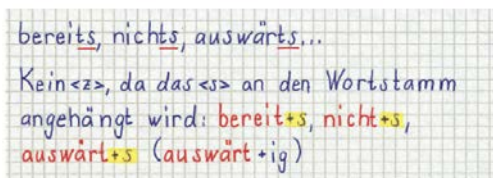 bereits, nichts, auswärts...
Kein <z>, da das <s> an den Wortstamm
angehängt wird: bereit+s, nicht+s,
auswärt+s (auswärt+ig)